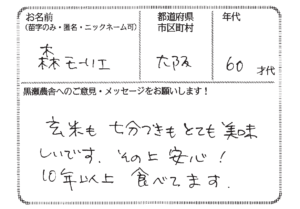 お名前
(苗字のみ・匿名・ニックネーム可)
都道府県
市区町村
年代
大阪
60 才代
黒瀬農舎へのご意見・メッセージをお願いします!
玄米も 七分づきも とても 美味
しいです。その上 安心!
10年以上 食べてます。